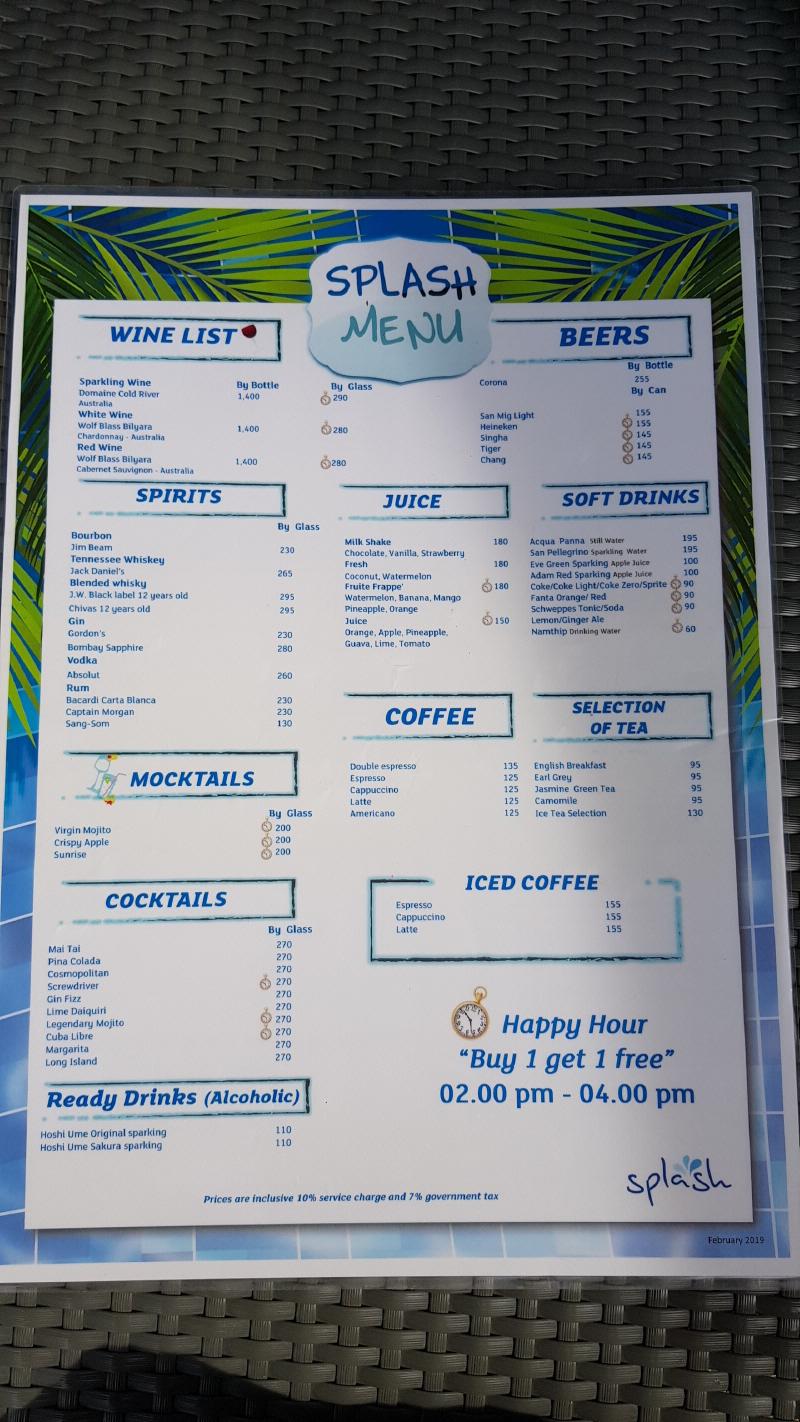 SPLASH
MENU
WINE LIST
Sparkling Wine By Bottle By Glass
Domaine Cold River 1,400 290
Australia
White Wine
Wolf Blass Bilyara 1,400 280
Chardonnay - Australia
Red Wine
Wolf Blass Bilyara 1,400 280
Cabernet Sauvignon - Australia
BEERS
By Bottle
Corona 255
By Can
San Mig Light 155
Heineken 155
Singha 145
Tiger 145
Chang 145
SPIRITS
By Glass
Bourbon
Jim Beam 230
Tennessee Whiskey
Jack Daniel's 265
Blended whisky
J.W. Black label 12 years old 295
Chivas 12 years old 295
Gin
Gordon's 230
Bombay Sapphire 280
Vodka
Absolut 260
Rum
Bacardi Carta Blanca 230
Captain Morgan 230
Sang-Som 130
JUICE
Milk Shake 180
Chocolate, Vanilla, Strawberry
Fresh 180
Coconut, Watermelon
Fruite Frappe' 180
Watermelon, Banana, Mango
Pineapple, Orange
Juice 150
Orange, Apple, Pineapple,
Guava, Lime, Tomato
SOFT DRINKS
Acqua Panna Still Water 195
San Pellegrino Sparkling Water 195
Eve Green Sparking Apple Juice 100
Adam Red Sparking Apple Juice 100
Coke/Coke Light/Coke Zero/Sprite 90
Fanta Orange/ Red 90
Schweppes Tonic/Soda 90
Lemon/Ginger Ale
Namthip Drinking Water 60
COFFEE
Double espresso 135
Espresso 125
Cappuccino 125
Latte 125
Americano 125
SELECTION
OF TEA
English Breakfast 95
Earl Grey 95
Jasmine Green Tea 95
Camomile 95
Ice Tea Selection 130
MOCKTAILS
By Glass
Virgin Mojito 200
Crispy Apple 200
Sunrise 200
COCKTAILS
By Glass
Mai Tai 270
Pina Colada 270
Cosmopolitan 270
Screwdriver 270
Gin Fizz 270
Lime Daiquiri 270
Legendary Mojito 270
Cuba Libre 270
Margarita 270
Long Island 270
ICED COFFEE
Espresso 155
Cappuccino 155
Latte 155
Happy Hour
"Buy 1 get 1 free"
02.00 pm - 04.00 pm
Ready Drinks (Alcoholic)
Hoshi Ume Original sparking 110
Hoshi Ume Sakura sparking 110
splash
Prices are inclusive 10% service charge and 7% government tax
February 2019